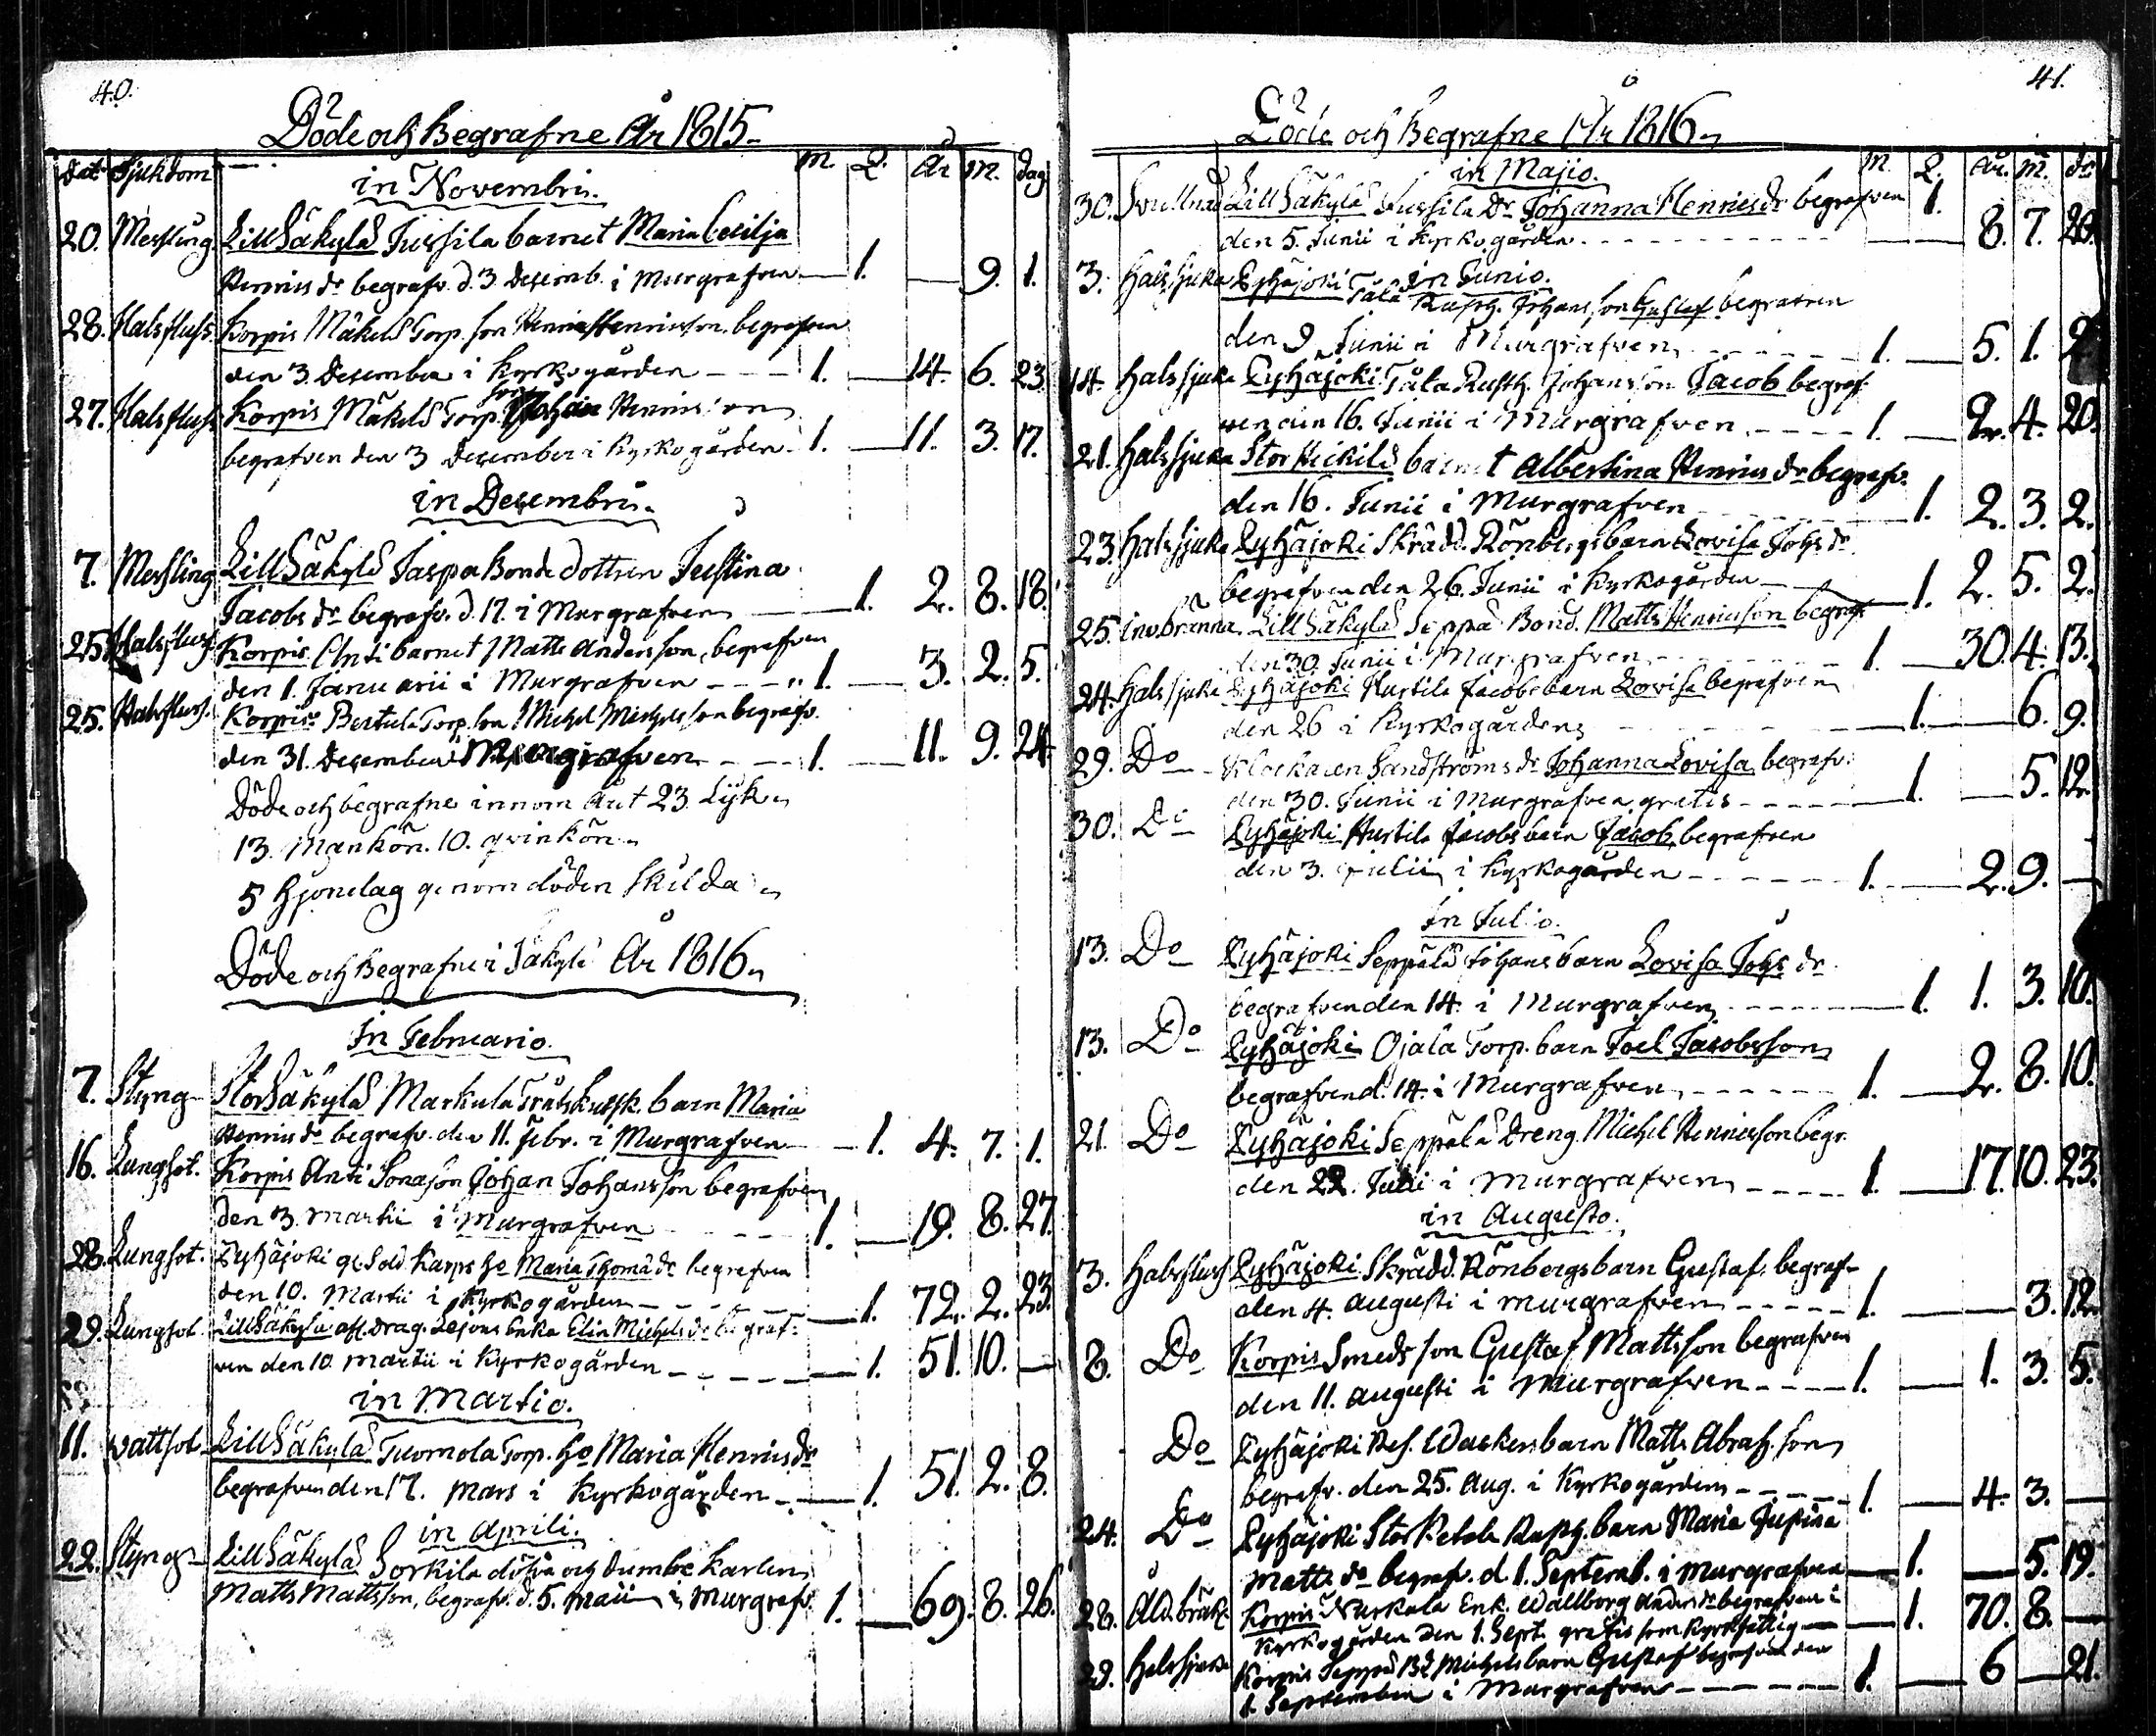 40.
Döde och Begrafne År 1815
Dat Sjukdom M. Q. År M. Dag
in Novembris.
20. Messling Lill Säkylä Jussila barnet Maria Cecilja
Henrics dr begrafv. d. 3 Desemb. i Murgrafven 1. 9. 1.
28. Halsfluss Korpis Mäkelä Torp. son Henric Henricsson, begrafven
den 3. Desember i Kyrkogården 1. 14. 6. 23.
27. Halsfluss Korpis Mäkelä Torp. son Johan Henricsson
begrafven den 3 Desember i Kyrkogården 1. 11. 3. 17.
in Desembris.
7. Messling Lill Säkylä Jaspa Bonde dottren Justina
Jacobs dr begrafv. d. 17. i Murgrafven 1. 2. 8. 18.
25. Halsfluss Korpis Anti barnet Matts Andersson, begrafven
den 1. Januarii i Murgrafven 1. 3. 2. 5.
25. Halsfluss. Korpis Bertula Torp. son Michel Michelsson begrafv.
den 31. Desember i Murgrafven 1. 11. 9. 24.
Döde och begrafne innom Året 23 Lijk
13. Mankön. 10. qvinkön
5 Hjonelag genom döden skilda
Döde och Begrafne i Säkylä År 1816
In Februario.
7. Styng Stor Säkylä Markula barn Maria
Henrics dr begrafv. den 11. Febr. i Murgrafven 1. 4. 7. 1.
16. Lungsot. Korpis Anti Sonason Johan Johansson begrafven
den 3. Martii i Murgrafven 1. 19. 8. 27
28. Lungsot. Pyhäjoki gl. Sold. Karps Ho Maria Thoma dr begrafven
den 10. Martii i Kyrkogården 1. 72. 2. 23.
29. Lungsot Lill Säkylä afl. Drag. Lejons Enka Elin Michels dr begraf-
ven den 10 Martii i Kyrkogården 1. 51. 10.
in Martio.
11. Wattsot Lill Säkylä Tuomola Torp. Ho Maria Henrics dr
begrafven den 17. Mars i Kyrkogården 1. 51. 2. 8.
in Aprili.
22. Styng Lill Säkylä Sorkila döfva och dumbe karlen
Matts Mattsson, begrafv. d. 5. Maii i Murgrafv. 1. 69. 8. 26.
41.
Döde och Begrafne År 1816
in Majo. M. Q. År. M. dr
30. Svullnad Lill Säkylä Jussila Dr Johanna Henrics dr begrafven 1.
den 5. Junii i Kyrkogården 8. 7. 20.
in Junio.
3. Halssjuka Pyhäjoki Tåla Rusth. Johans son Gustaf begrafven
den 9 Junii i Murgrafven 1. 5. 1. 2
14. Halssjuka Pyhäjoki Tåla Rusth. Johans son Jacob begraf-
ven den 16. Junii i Murgrafven 1. 2. 4. 20.
21. Halssjuka Stor Heikilä barnet Albertina Henrics dr begrafv.
den 16. Junii i Murgrafven 1. 2. 3. 2.
23. Halssjuka Pyhäjoki Skrädd. Rönbergs barn Lovisa Johs dr
begrafven den 26. Junii i Kyrkogården 1. 2. 5. 2.
25. Inv. bränna Lill Säkylä Seppä Bond. Matts Henricsson begraf.
den 30. Junii i Murgrafven 1. 30. 4. 13.
24. Halssjuka Pyhäjoki Hustila Jacobs barn Lovisa begrafven
den 26 i Kyrkogården 1. 6. 9.
29. Do Klockaren Sandströms dr Johanna Lovisa begrafv.
den 30. Junii i Murgrafven gratis 1. 5. 12.
30. Do Pyhäjoki Hustila Jacobs barn Jacob begrafven
den 3. Julii i Kyrkogården 1. 2. 9.
In Julio.
13. Do Pyhäjoki Seppälä Johans barn Lovisa Johs dr
begrafven den 14. i Murgrafven 1. 1. 3. 10.
13. Do Pyhäjoki Ojala Torp. barn Joel Jacobsson
begrafven d. 14. i Murgrafven 1. 2. 8. 10.
21. Do Pyhäjoki Seppälä Dreng. Michel Henricsson begr.
den 22. Julii i Murgrafven 1. 17. 10. 23.
in Augusto.
3. Halsfluss Pyhäjoki Skrädd. Rönbergs barn Gustaf, begraf-
den 4. Augusti i Murgrafven 1. 3. 12.
8. Do Korpis Smeds son Gustaf Mattsson begrafven
den 11. Augusti i Murgrafven 1. 1. 3. 5.
Do Pyhäjoki Res. Wackers barn Matts Abrah. son
begrafv. den 25. Aug. i Kyrkogården 1. 4. 3.
24. Do Pyhäjoki Storketola Rusth. barn Maria
Matts dr begrafv. d. 1. Septemb. i Murgrafven 1. 5. 19.
28. Åld. bräk. Korpis Nurkala Enk. Wallborg Anders dr begrafven i
Kyrkogården den 1. Sept. gratis som Kyrkfattig 1. 70. 8.
29. Halssjuka Korpis Seppä Bd Michels barn Gustaf begrafven den
1. September i Murgrafven 1. 6 21.